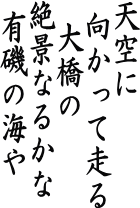 天空に
向かって走る
大橋の
絶景なるかな
有磯の海や